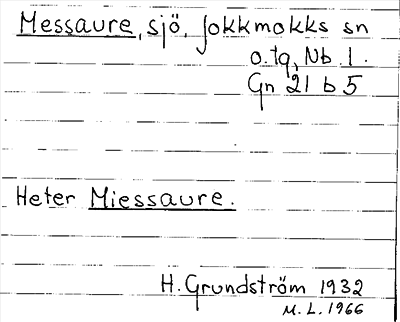 Messaure, sjö, Jokkmokks sn
o. tg, Nb l.
Gn 21 b 5
Heter Miessaure.
H. Grundström 1932
M. L. 1966